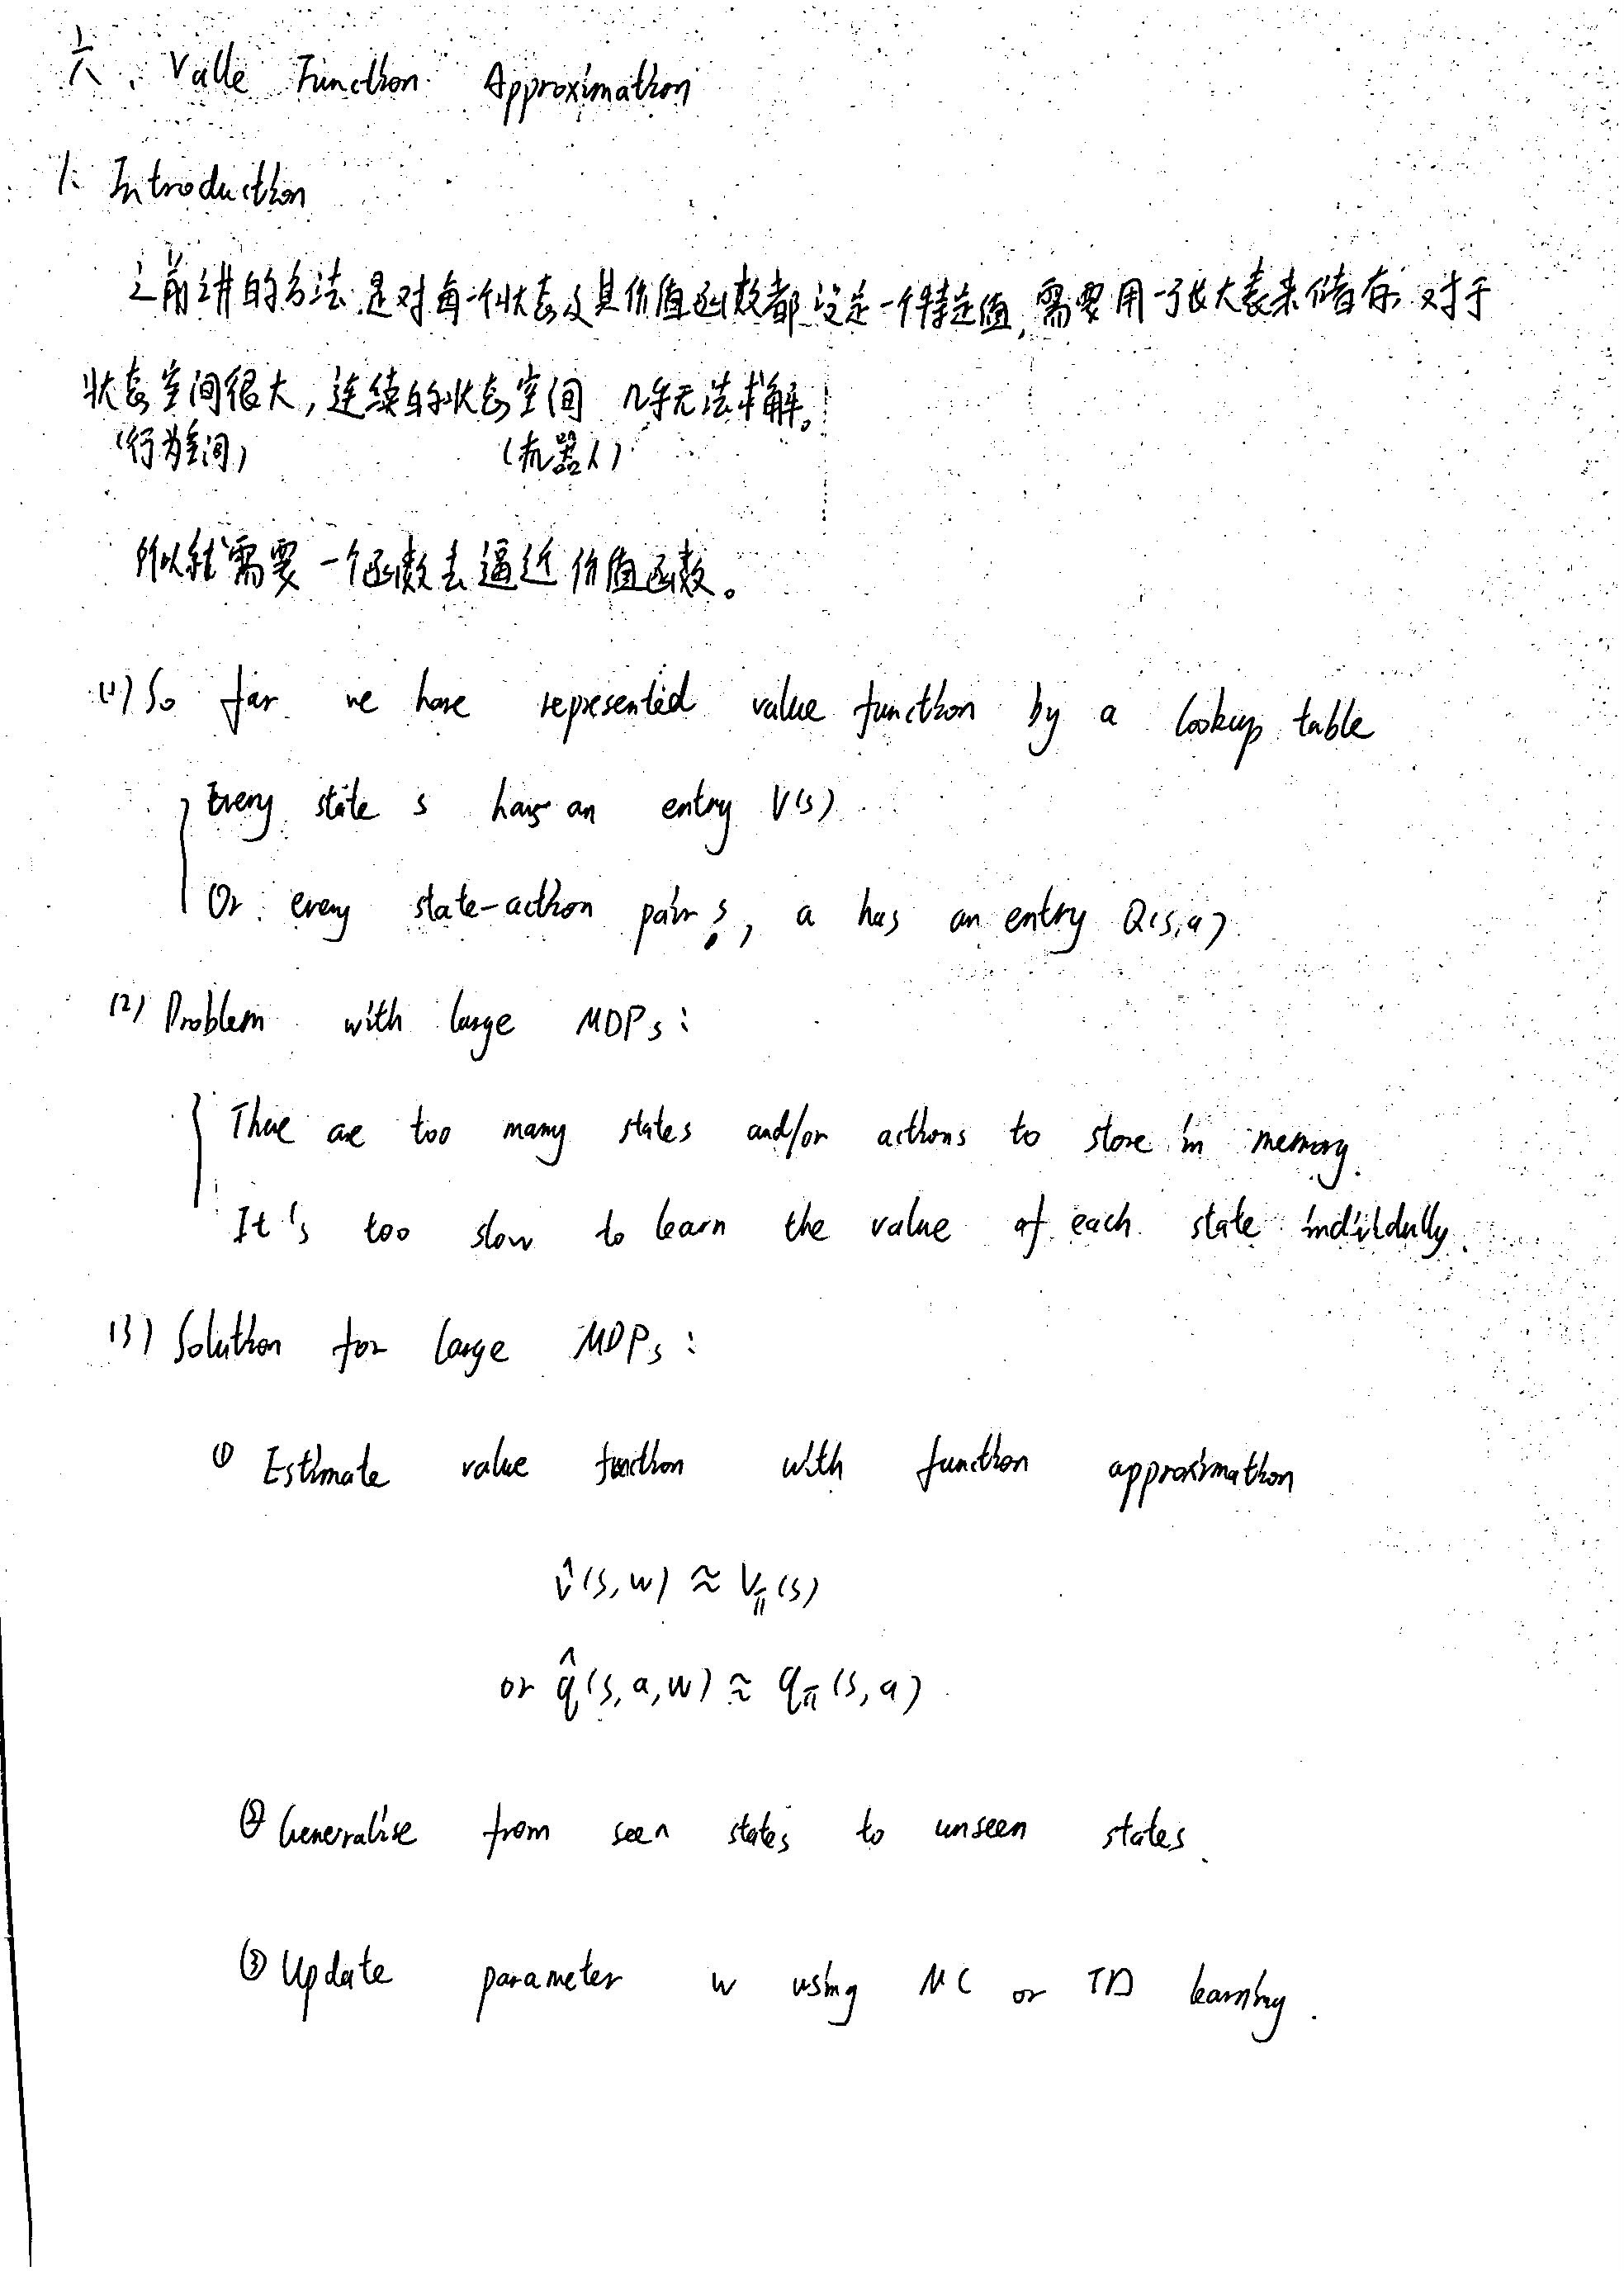 六、Valle Function Approximation
1. Introduction
之前讲的方法是对每一个状态及其价值函数都设定一个特定值,需要用一张大表来储存。对于
状态空间很大,连续的状态空间 几乎无法求解。
(行为空间) (机器人)
所以就需要一个函数去逼近价值函数。
(1) So far we have represented value function by a lookup table
Every state s has an entry V(s)
Or every state-action pair s, a has an entry Q(s,a)
(2) Problem with large MDPs:
There are too many states and/or actions to store in memory.
It's too slow to learn the value of each state indivldully.
(3) Solution for large MDPs:
① Estimate value function with function approximation
v̂(s,w) ≈ Vπ(s)
or q̂(s,a,w) ≈ qπ(s,a)
② Generalise from seen states to unseen states.
③ Update parameter w using MC or TD learning.